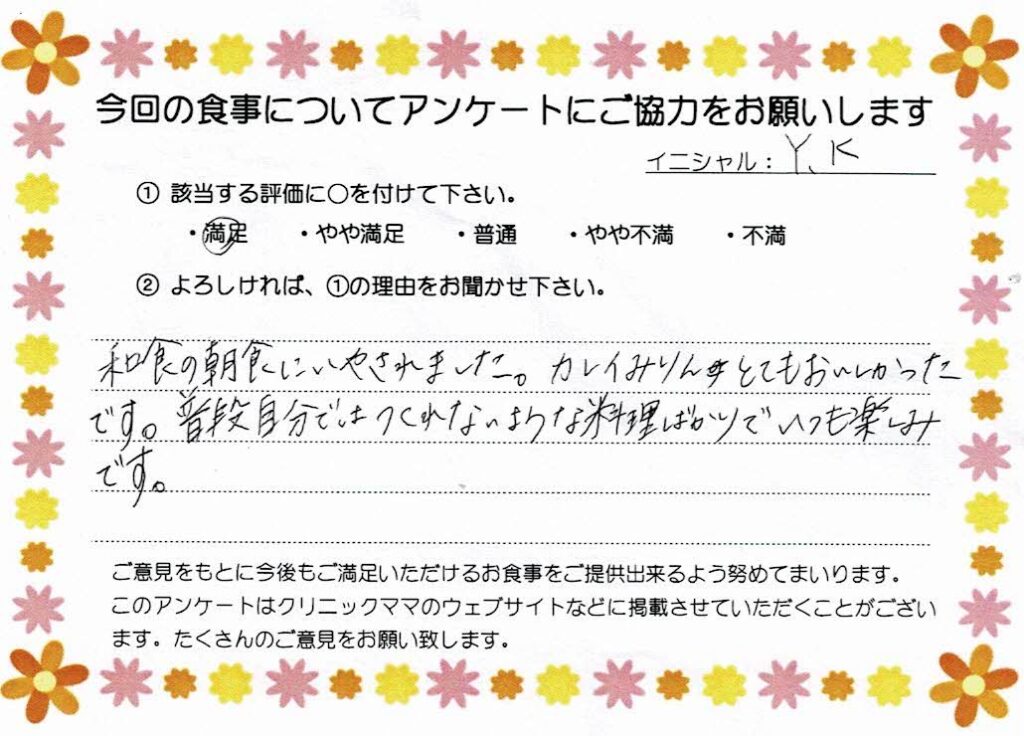 今回の食事についてアンケートにご協力をお願いします
イニシャル： Y、K
① 該当する評価に○を付けて下さい。
・満足 ・やや満足 ・普通 ・やや不満 ・不満
② よろしければ、①の理由をお聞かせ下さい。
和食の朝食にいやされました。カレイみりんとてもおいしかった
です。普段自分ではつくれないような料理ばかりでいつも楽しみ
です。
ご意見をもとに今後もご満足いただけるお食事をご提供出来るよう努めてまいります。
このアンケートはクリニックママのウェブサイトなどに掲載させていただくことがござい
ます。たくさんのご意見をお願い致します。